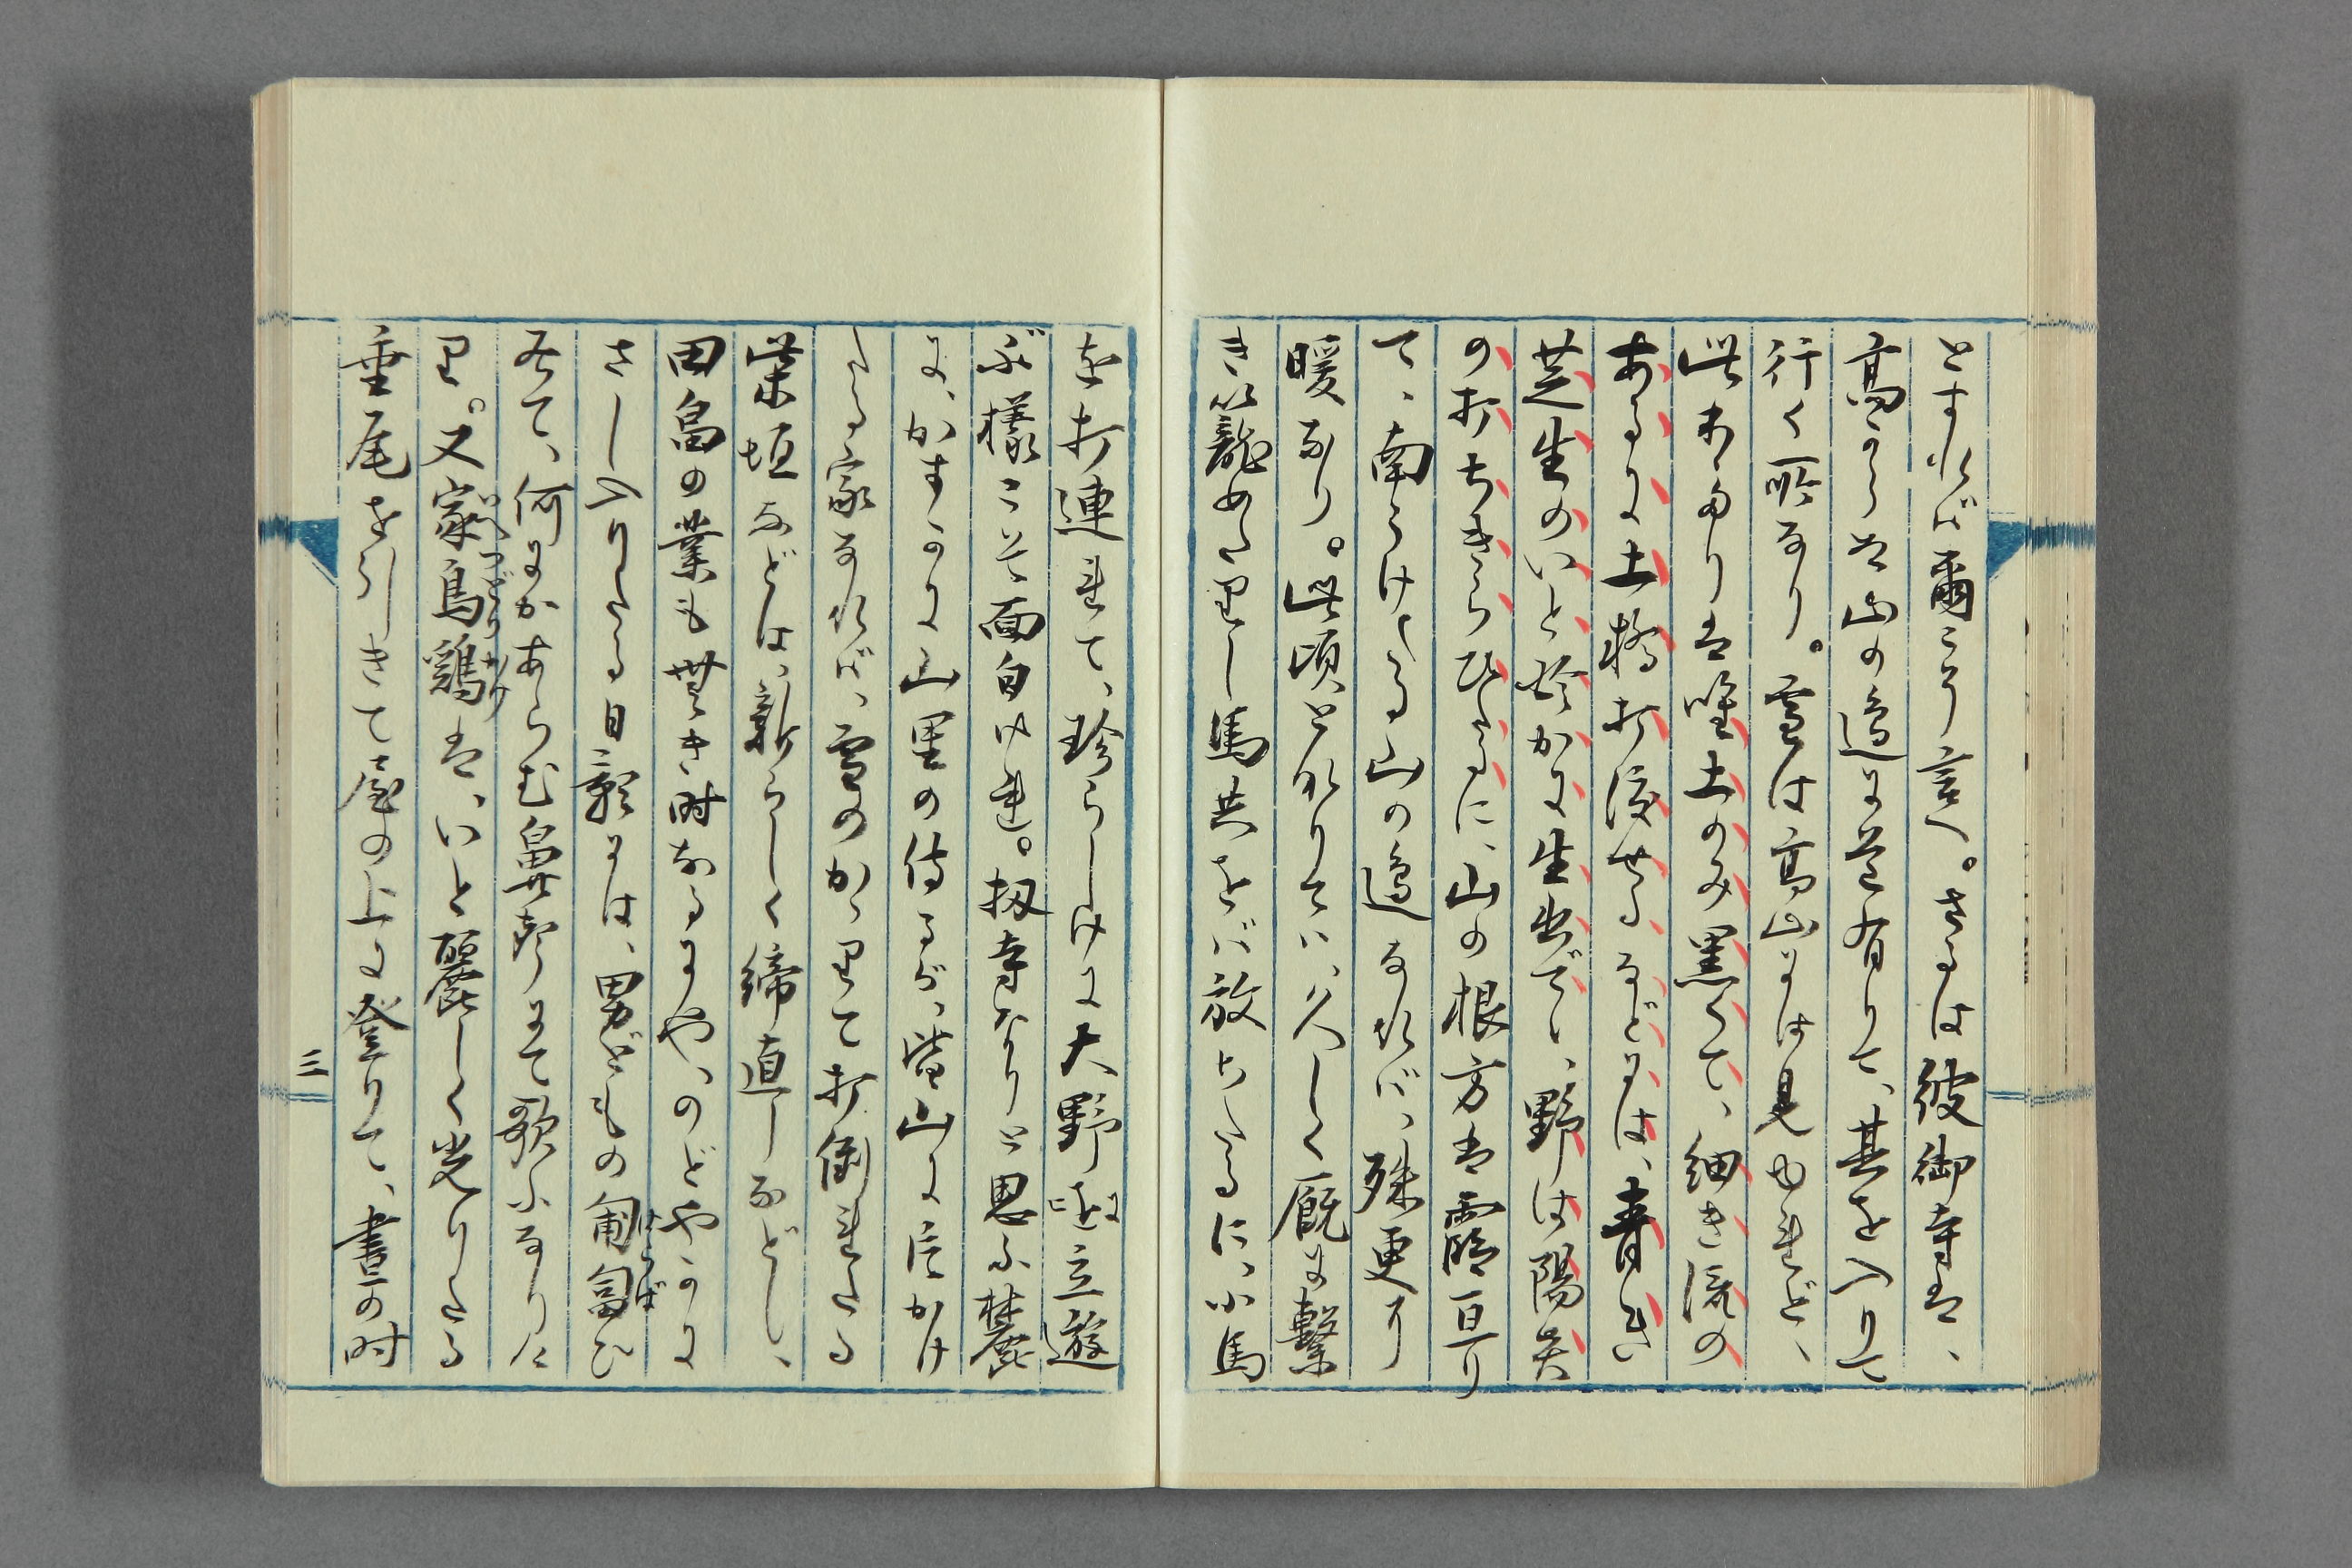 とすれば爾こそ言へ。さるは彼御寺は、
高からぬ山の邉に道有りて、其を入りて
行く所なり。雪は高山には見ゆれど、
此わたりは唯土のみ黒くて、細き流の
あるに土橋打渡せるなどには、青き
芝生のいと珍かに生出でゝ、野は陽炎
の打ちきらひたるに、山の根方は霞亘り
て、南うけたる山の邉なれば、殊更に
暖なり。此頃となりては、久しく厩に繋
き籠めたりし馬共をば放ちたるに、小馬
を打連れて、珍らしげに大野に立遊
ぶ様こそ面白けれ。扨寺なりと思ふ麓
に、かすかに山里の侍るが、皆山に片かけ
たる家なれば、雪のかゝりて打倒れたる
柴垣などは、新らしく締直しなどし、
田畠の業も無き時なるにや、のどやかに
さし入りたる日影には、男どもの匍匐ひ
居て、何にかあらむ鼻聲にて歌ふなりけ
り。又家鳥鶏は、いと麗しく光りたる
垂尾を引きて屋の上に登りて、晝の時
三